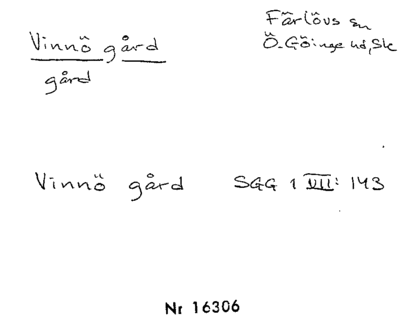 Färlövs sn
Vinnö gård
Ö. Göinge hd, Sk
gård
Vinnö gård SGG 1 VII: 143
Nr 16306